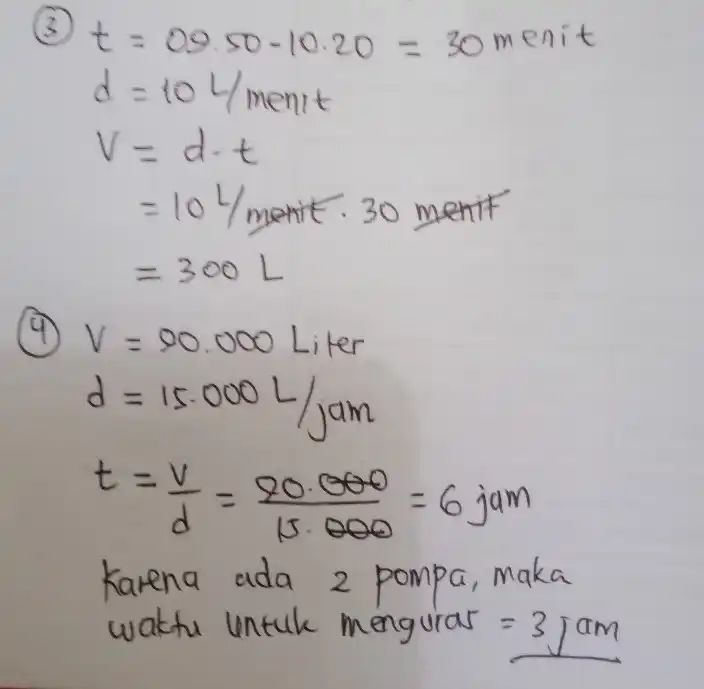 ③ t = 09.50 - 10.20 = 30 menit
d = 10 L/menit
V = d . t
= 10 L/menit . 30 menit
= 300 L
④ V = 90.000 Liter
d = 15.000 L/jam
t = V/d = 90.000/15.000 = 6 jam
Karena ada 2 pompa, maka
waktu untuk menguras = 3 jam